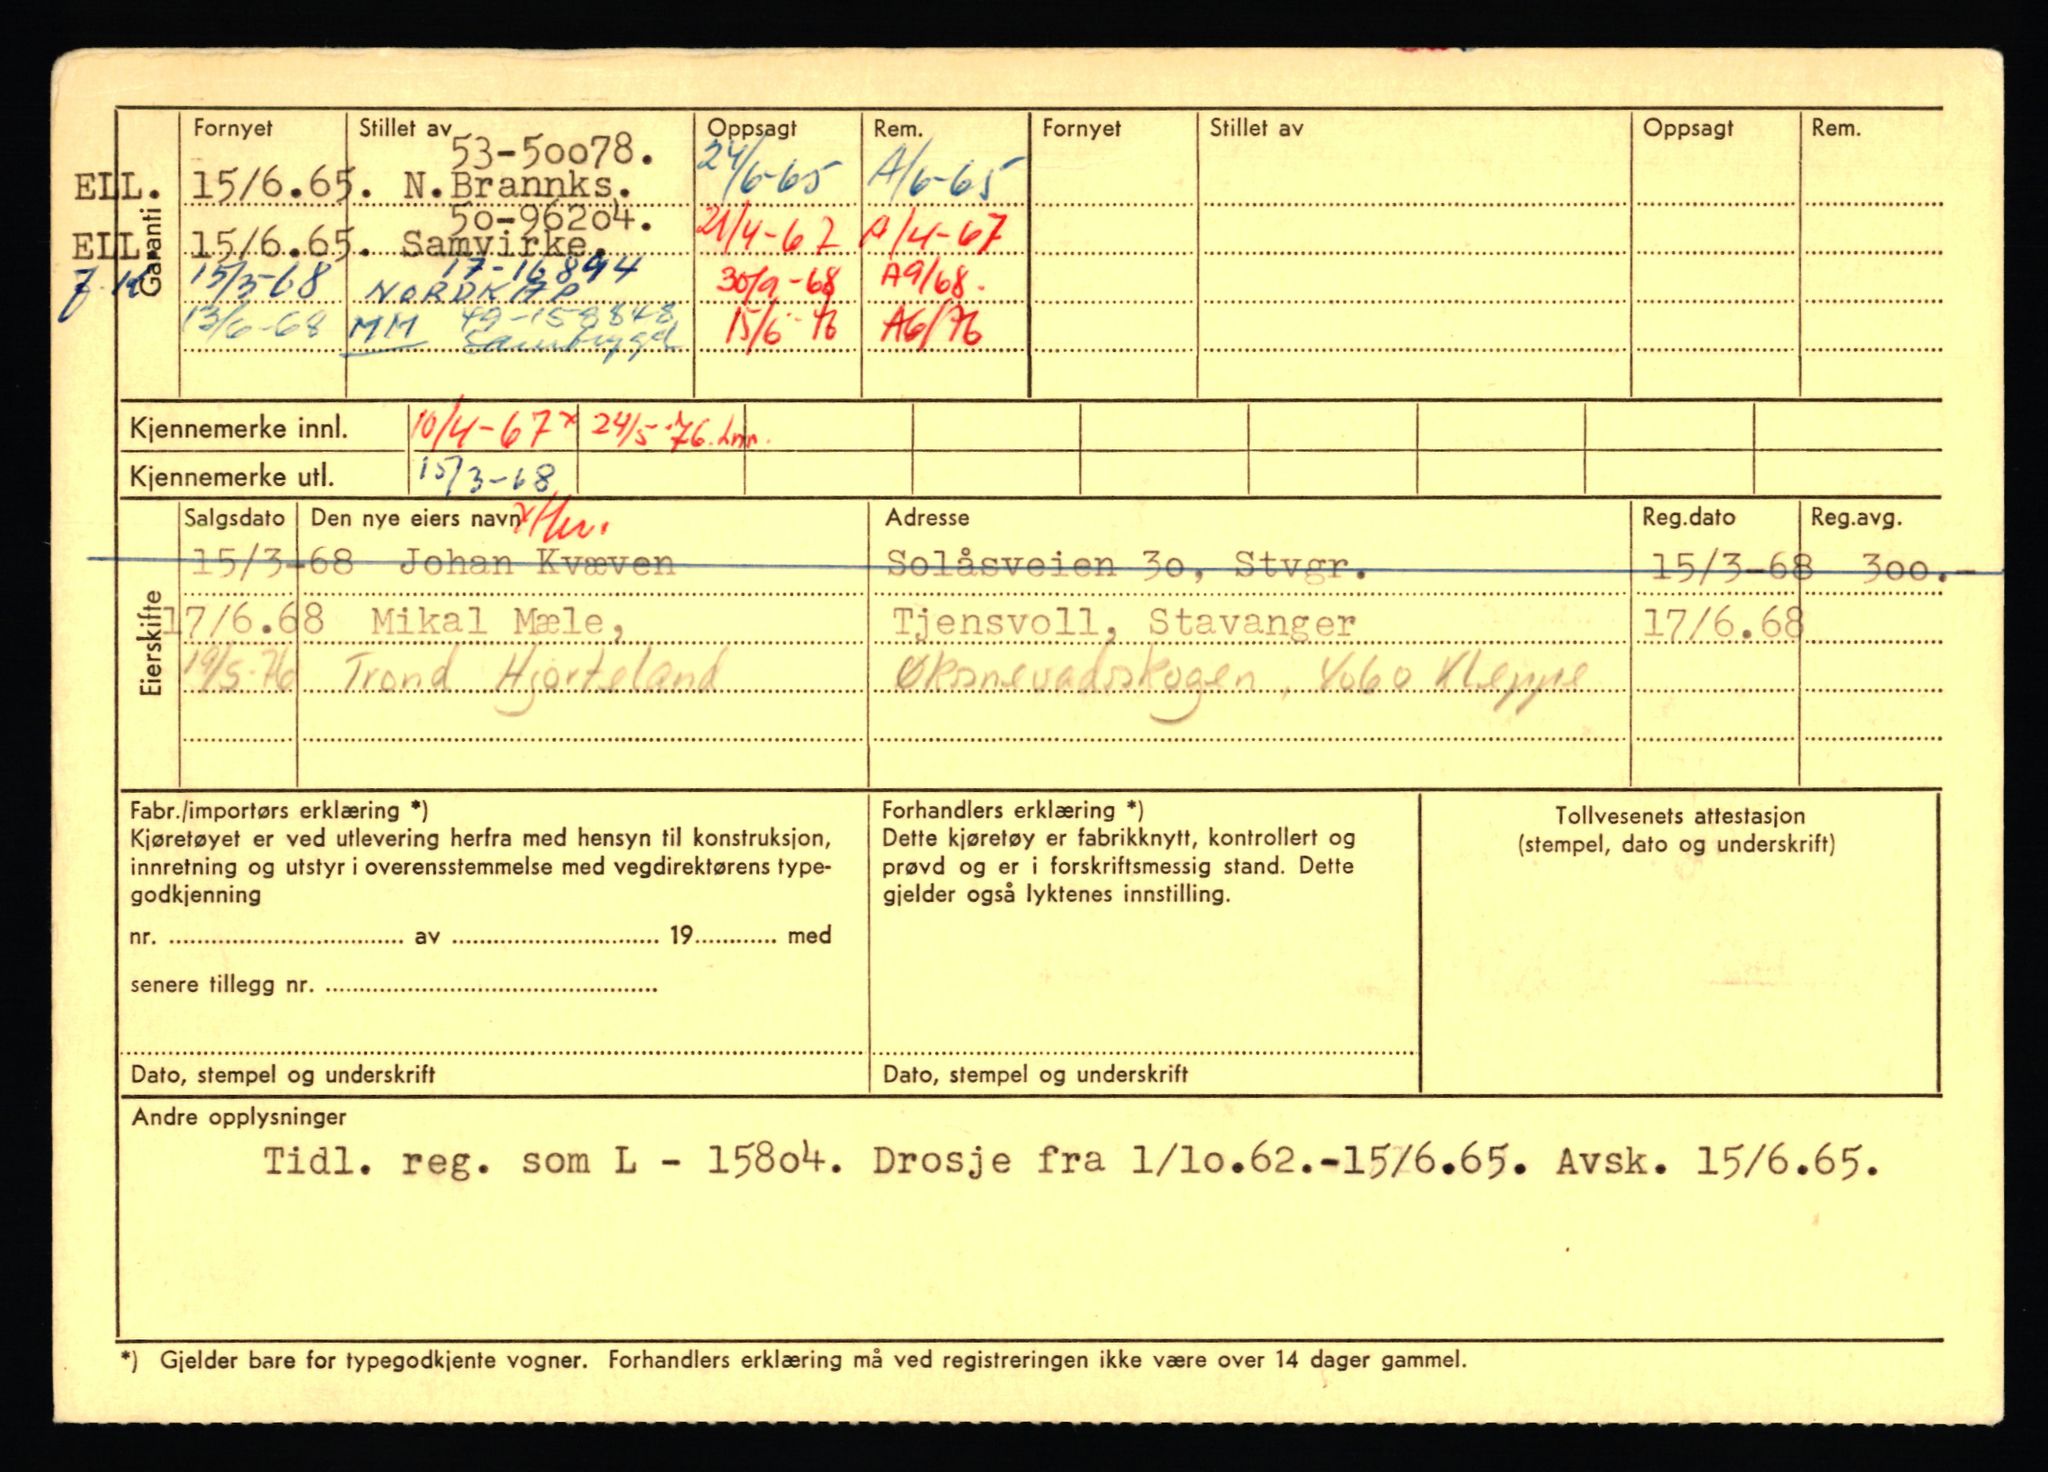 Fornyet Stillet av Oppsagt Rem. Fornyet Stillet av Oppsagt Rem.
53-50078.
ELL. 15/6.65. N.Brannks. 24/6-65 A/6-65
50-96204.
ELL 15/6.65. Samvirke. 21/4-67 A/4-67
Garanti
15/3-68 17-16894 30/9-68 A9/68.
NORDKAP
13/6-68 MM 49-158848 15/6-76 A6/76
Samtrygd
Kjennemerke innl. 10/4-67x 24/5-76.
Kjennemerke utl. 15/3-68
Eierskifte
Salgsdato Den nye eiers navn Adresse Reg.dato Reg.avg.
15/3-68 Johan Kvæven Solåsveien 3o, Stvgr. 15/3-68 3oo.-
17/6.68 Mikal Mæle, Tjensvoll, Stavanger 17/6.68
19/5-76 Trond Hjorteland Øksnevadskogen, 4060 Kleppe
Fabr./importørs erklæring *) Forhandlers erklæring *) Tollvesenets attestasjon
Kjøretøyet er ved utlevering herfra med hensyn til konstruksjon, Dette kjøretøy er fabrikknytt, kontrollert og (stempel, dato og underskrift)
innretning og utstyr i overensstemmelse med vegdirektørens type- prøvd og er i forskriftsmessig stand. Dette
godkjenning gjelder også lyktenes innstilling.
nr. .................................... av ................................ 19............. med
senere tillegg nr. ...................................................
Dato, stempel og underskrift Dato, stempel og underskrift
Andre opplysninger
Tidl. reg. som L - 158o4. Drosje fra 1/1o.62.-15/6.65. Avsk. 15/6.65.
*) Gjelder bare for typegodkjente vogner. Forhandlers erklæring må ved registreringen ikke være over 14 dager gammel.